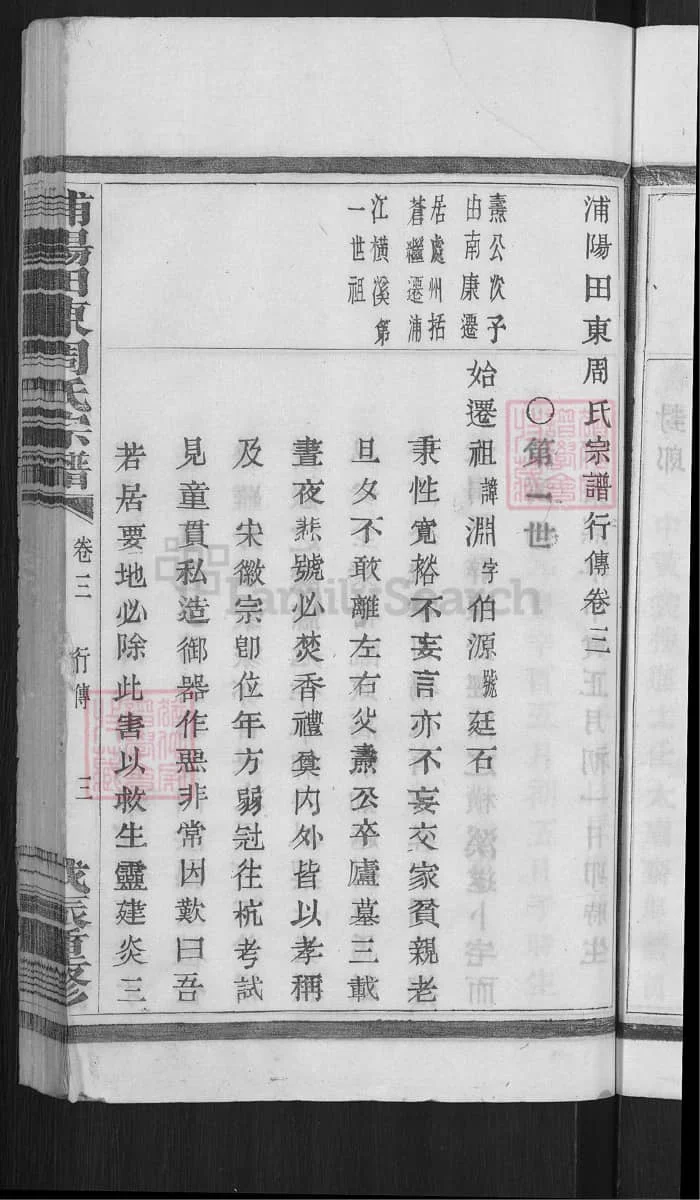 浦陽田東周氏宗譜行傳卷三
〇第一世
燾公次子
由南康遷
居處州括
蒼繼遷浦
江橫溪第
一世祖
始遷祖諱淵字伯源號廷石
秉性寬裕不妄言亦不妄交家貧親老
旦夕不敢離左右父燾公卒廬墓三載
晝夜悲號必焚香禮奠內外皆以孝稱
及 宋徽宗卽位年方弱冠往杭考試
見童貫私造御器作惡非常因歎曰吾
若居要地必除此害以救生靈建炎三
浦陽田東周氏宗譜 卷三 行傳 三 戊辰重修
FamilySearch